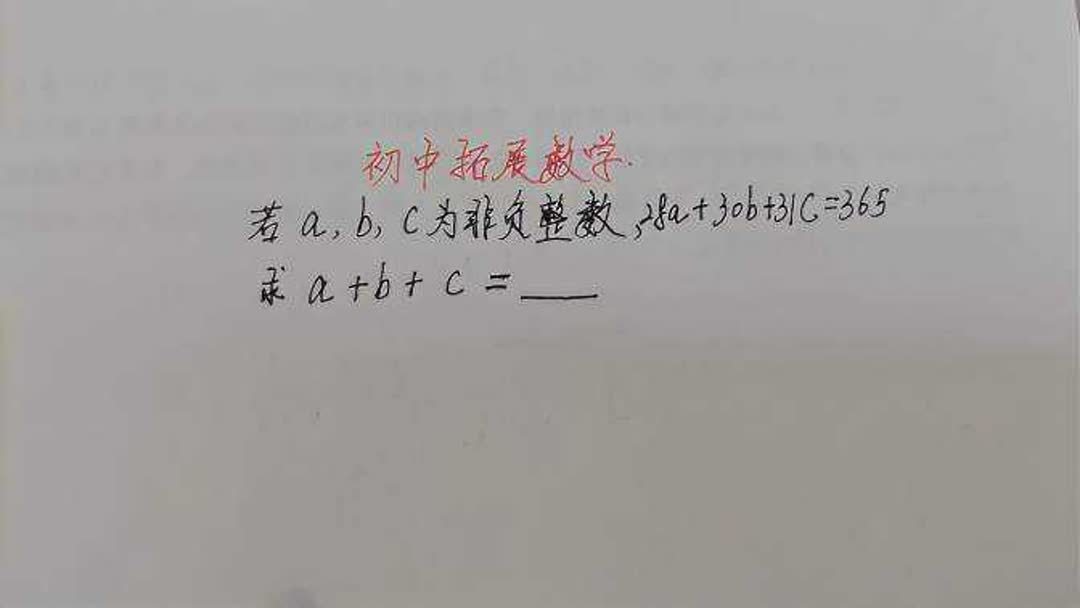 初中拓展数学.
若a,b,c为非负整数,28a+30b+31C=365
求 a+b+c=____